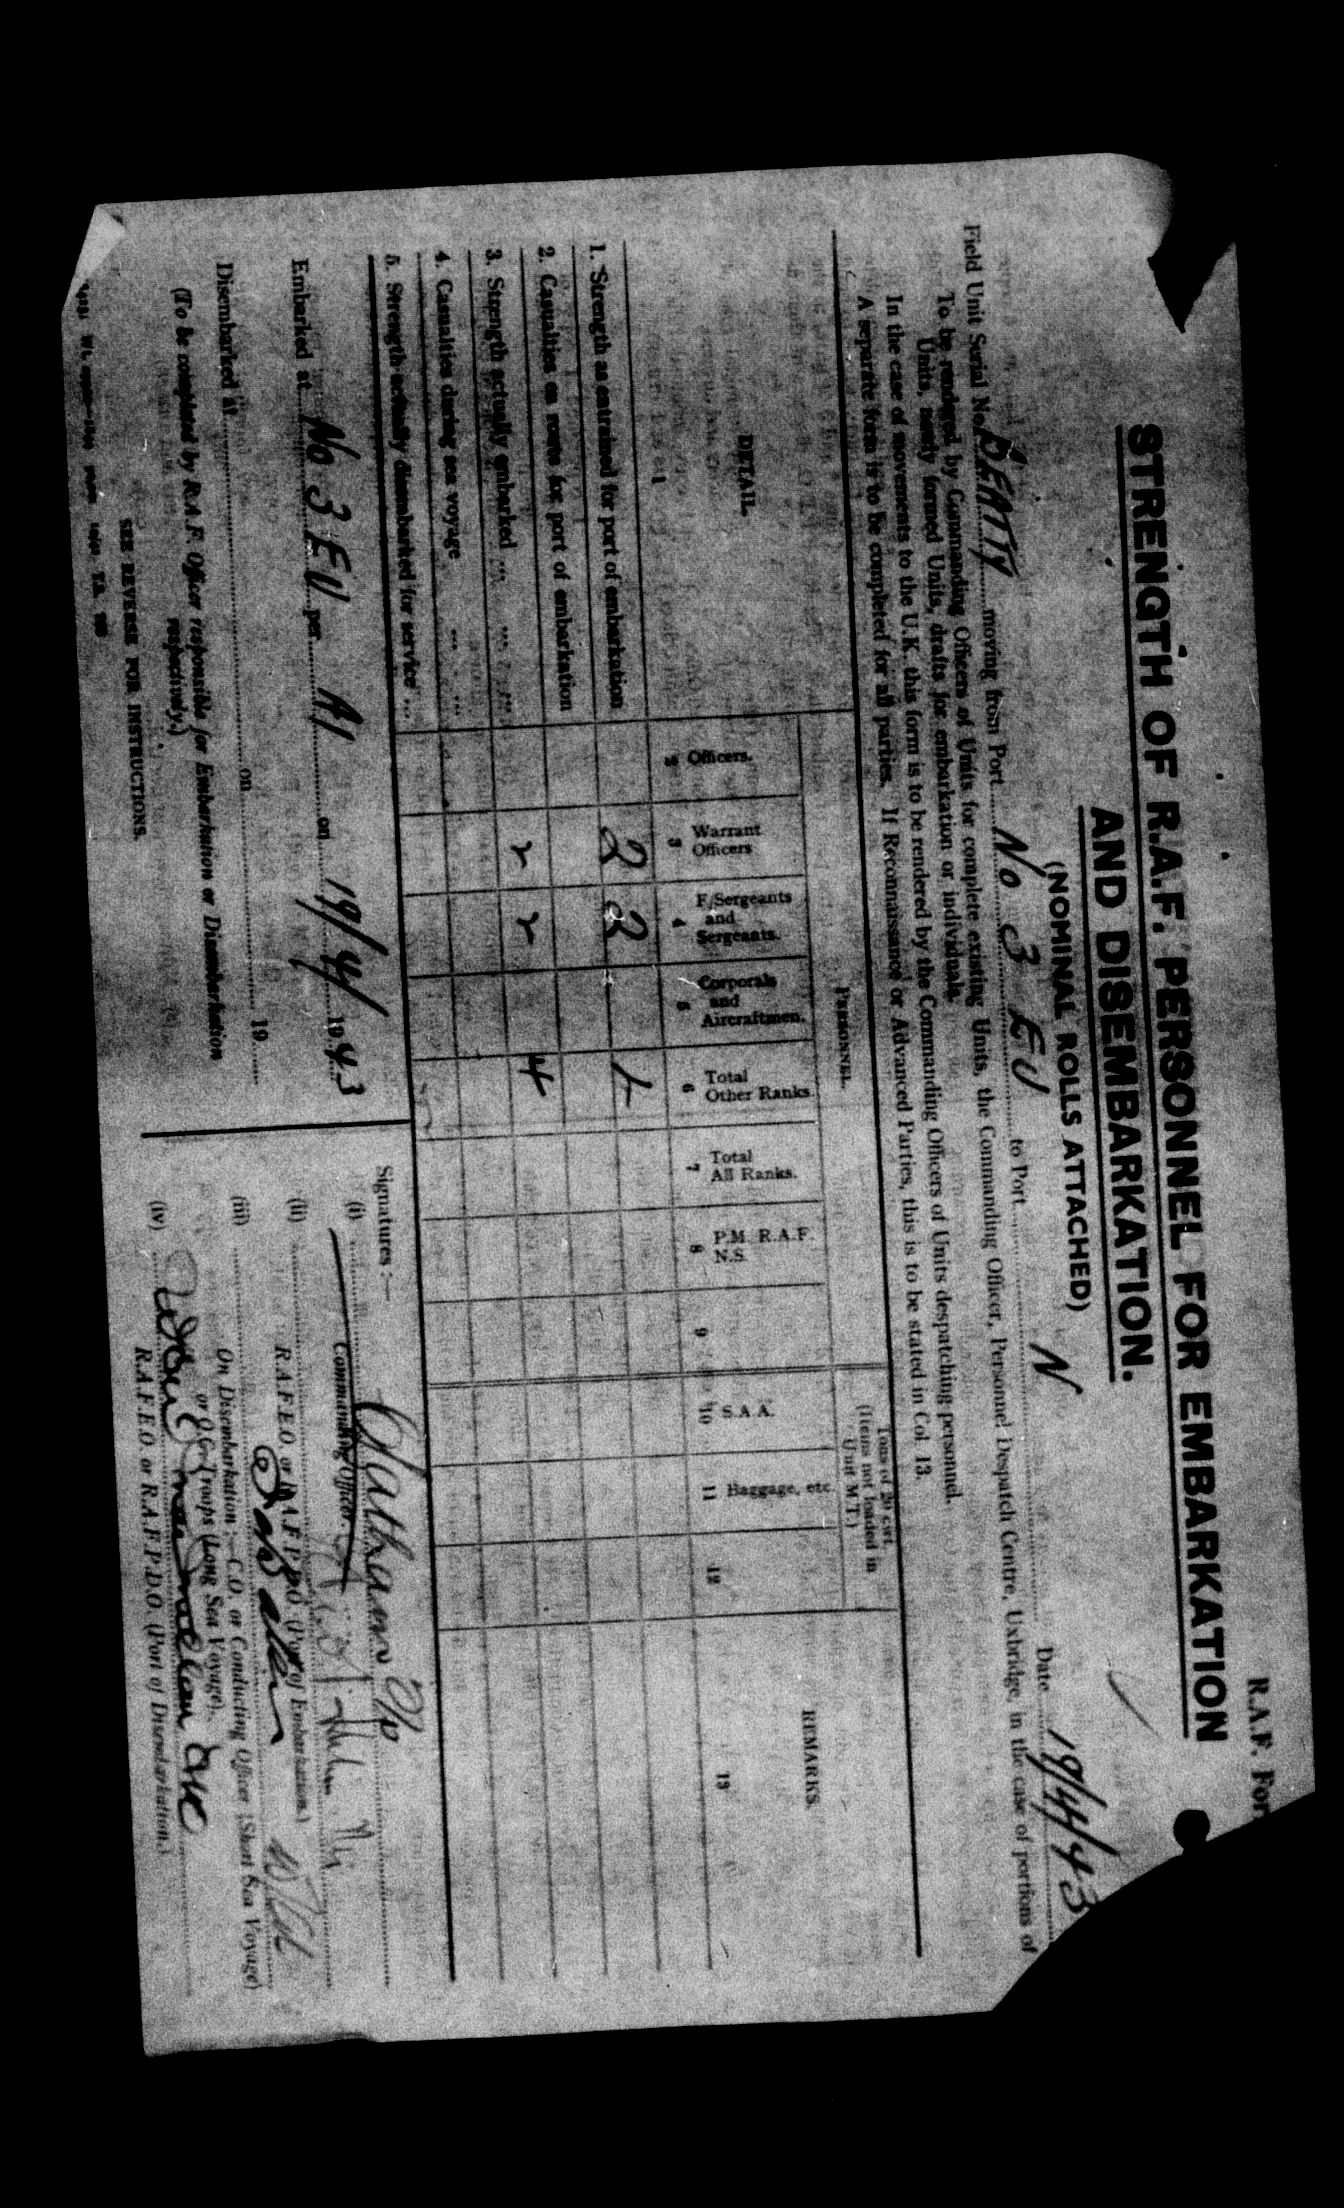 R.A.F. For
STRENGTH OF R.A.F. PERSONNEL FOR EMBARKATION
AND DISEMBARKATION.
(NOMINAL ROLLS ATTACHED)
Date 19/4/43
Field Unit Serial No. BEATTY moving from Port No 3 EU to Port N
To be rendered by Commanding Officers of Units for complete existing Units, the Commanding Officer, Personnel Despatch Centre, Uxbridge, in the case of portions of
Units, newly formed Units, drafts for embarkation or individuals.
In the case of movements to the U.K. this form is to be rendered by the Commanding Officers of Units despatching personnel.
A separate form is to be completed for all parties. If Reconnaissance or Advanced Parties, this is to be stated in Col. 13.
PERSONNEL.
Tons of 20 cwt.
(Items not loaded in
Unit M.T.)
DETAIL
Officers.
Warrant
Officers
F/Sergeants
and
Sergeants.
Corporals
and
Aircraftmen.
Total
Other Ranks
Total
All Ranks.
P.M. R.A.F.
N.S.
S.A.A.
Baggage, etc.
REMARKS.
1 2 3 4 5 6 7 8 9 10 11 12 13
1. Strength as entrained for port of embarkation 2 2
2. Casualties en route for port of embarkation
3. Strength actually embarked ... ... ... 2 2 4
4. Casualties during sea voyage ... ...
5. Strength actually disembarked for service ...
Embarked at No 3 EU per A1 on 19/4/ 1943
Disembarked at on 19
(To be completed by R.A.F. Officer responsible for Embarkation or Disembarkation
respectively.)
SEE REVERSE FOR INSTRUCTIONS.
Signatures :—
(i)
Commanding Officer.
(ii)
R.A.F.E.O. or R.A.F.P.D.O. (Port of Embarkation.)
(iii)
On Disembarkation :—C.O. or Conducting Officer (Short Sea Voyage)
or O.C. Troops (Long Sea Voyage).
(iv)
R.A.F.E.O. or R.A.F.P.D.O. (Port of Disembarkation.)